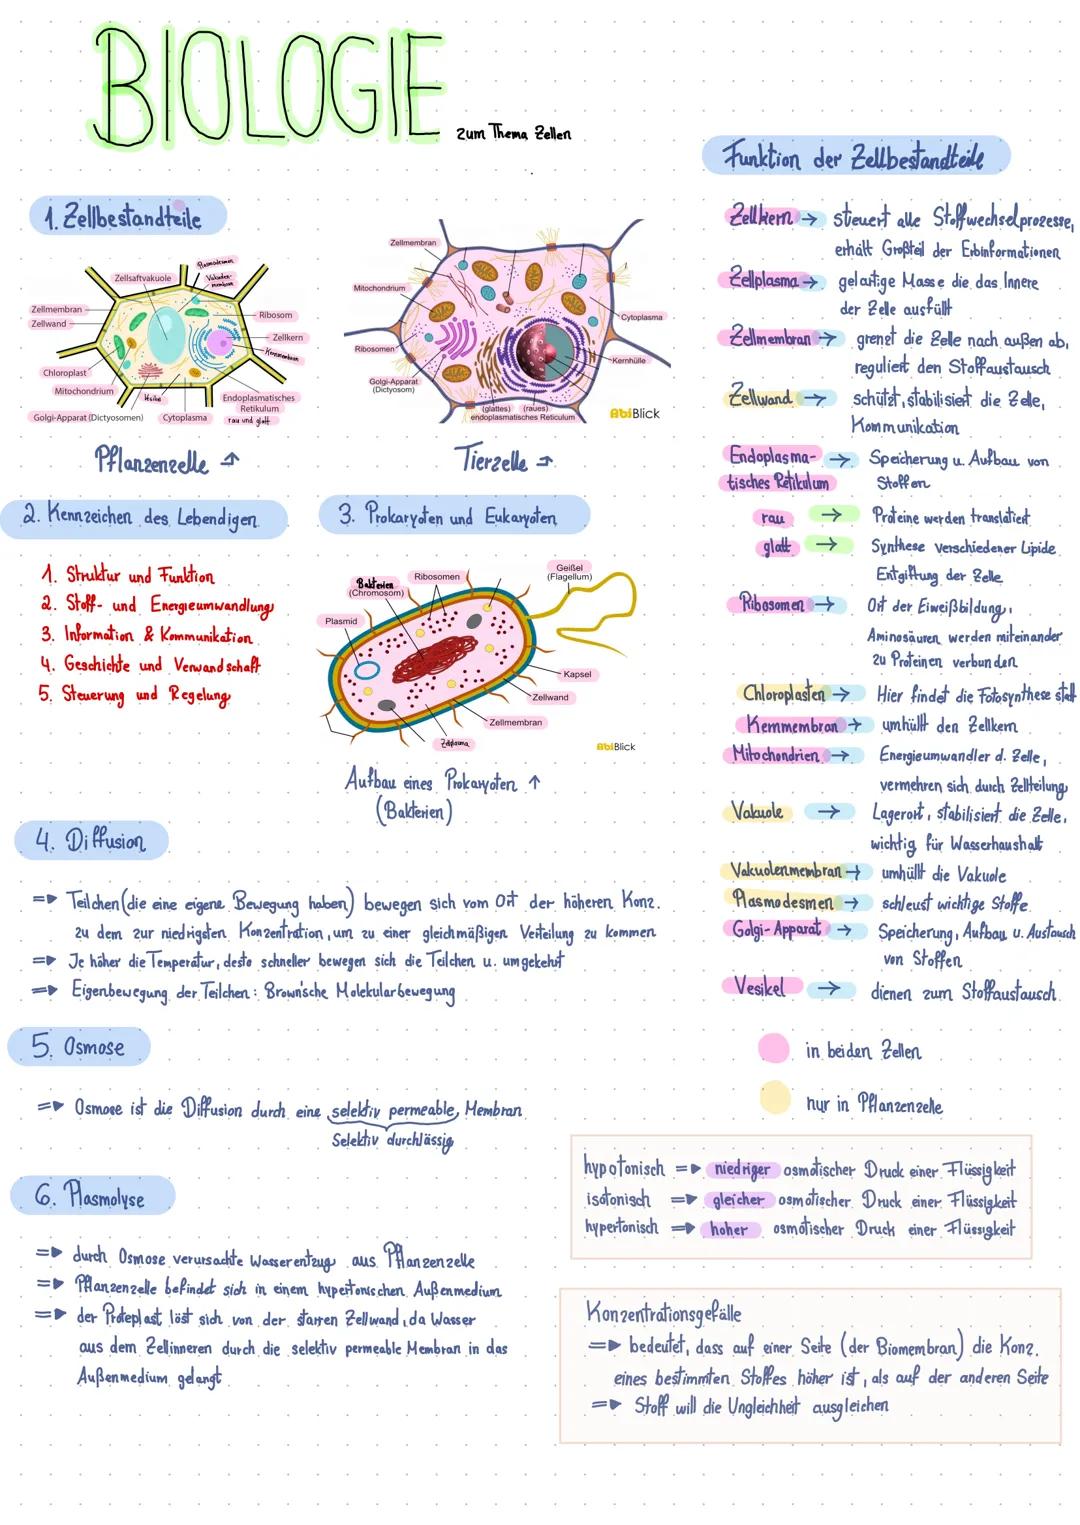 BIOLOGIE
zum Thema Zellen
1. Zellbestandteile
Zellsaftvakuole
Plasmodesmen
Vakuolen-
membran
Zellmembran
Zellwand
Ribosom
Zellkern
Kernmembran
Chloroplast
Mitochondrium
Endoplasmatisches
Retikulum
rau und glatt
Golgi-Apparat (Dictyosomen)
Cytoplasma
Pflanzenzelle
Zellmembran
Mitochondrium
Cytoplasma
Ribosomen
Kernhülle
Golgi-Apparat
(Dictyosom)
(glattes) (raues)
endoplasmatisches Reticulum
AbiBlick
Tierzelle
2. Kennzeichen des Lebendigen
1. Struktur und Funktion
2. Stoff- und Energieumwandlung
3. Information & Kommunikation
4. Geschichte und Verwandschaft
5. Steuerung und Regelung
3. Prokaryoten und Eukaryoten
Bakterien
(Chromosom)
Ribosomen
Geißel
(Flagellum)
Plasmid
Kapsel
Zellwand
Zellmembran
Zellplasma
AbiBlick
Aufbau eines Prokaryoten ↑
(Bakterien)
4. Diffusion
=> Teilchen (die eine eigene Bewegung haben) bewegen sich vom Ort der höheren Konz.
zu dem zur niedrigsten Konzentration, um zu einer gleichmäßigen Verteilung zu kommen
=> Je höher die Temperatur, desto schneller bewegen sich die Teilchen u. umgekehrt
=> Eigenbewegung der Teilchen: Brown'sche Molekularbewegung
5. Osmose
=> Osmose ist die Diffusion durch eine selektiv permeable Membran
Selektiv durchlässig
6. Plasmolyse
=> durch Osmose verursachte Wasserentzug aus Pflanzenzelle
=> Pflanzenzelle befindet sich in einem hypertonischen Außenmedium
=> der Proteplast löst sich von der starren Zellwand, da Wasser
aus dem Zellinneren durch die selektiv permeable Membran in das
Außenmedium gelangt
Funktion der Zellbestandteile
Zellkern → steuert alle Stoffwechselprozesse,
erhält Großteil der Erbinformationen
Zellplasma → gelartige Masse die das Innere
der Zelle ausfüllt
Zellmembran → grenzt die Zelle nach außen ab,
reguliert den Stoffaustausch
Zellwand → schützt, stabilisiert die Zelle,
Kommunikation
Endoplasma- → Speicherung u. Aufbau von
tisches Retikulum Stoffen
rau → Proteine werden translatiert
glatt → Synthese verschiedener Lipide
Entgiftung der Zelle
Ribosomen → Ort der Eiweißbildung,
Aminosäuren werden miteinander
zu Proteinen verbunden
Chloroplasten → Hier findet die Fotosynthese statt
Kernmembran → umhüllt den Zellkern
Mitochondrien → Energieumwandler d. Zelle,
vermehren sich durch Zellteilung
Vakuole → Lagerort, stabilisiert die Zelle,
wichtig für Wasserhaushalt
Vakuolenmembran → umhüllt die Vakuole
Plasmodesmen → schleust wichtige Stoffe
Golgi-Apparat → Speicherung, Aufbau u. Austausch
von Stoffen
Vesikel → dienen zum Stoffaustausch
in beiden Zellen
nur in Pflanzenzelle
hypotonisch => niedriger osmotischer Druck einer Flüssigkeit
isotonisch => gleicher osmotischer Druck einer Flüssigkeit
hypertonisch => hoher osmotischer Druck einer Flüssigkeit
Konzentrationsgefälle
=> bedeutet, dass auf einer Seite (der Biomembran) die Konz.
eines bestimmten Stoffes höher ist, als auf der anderen Seite
=> Stoff will die Ungleichheit ausgleichen